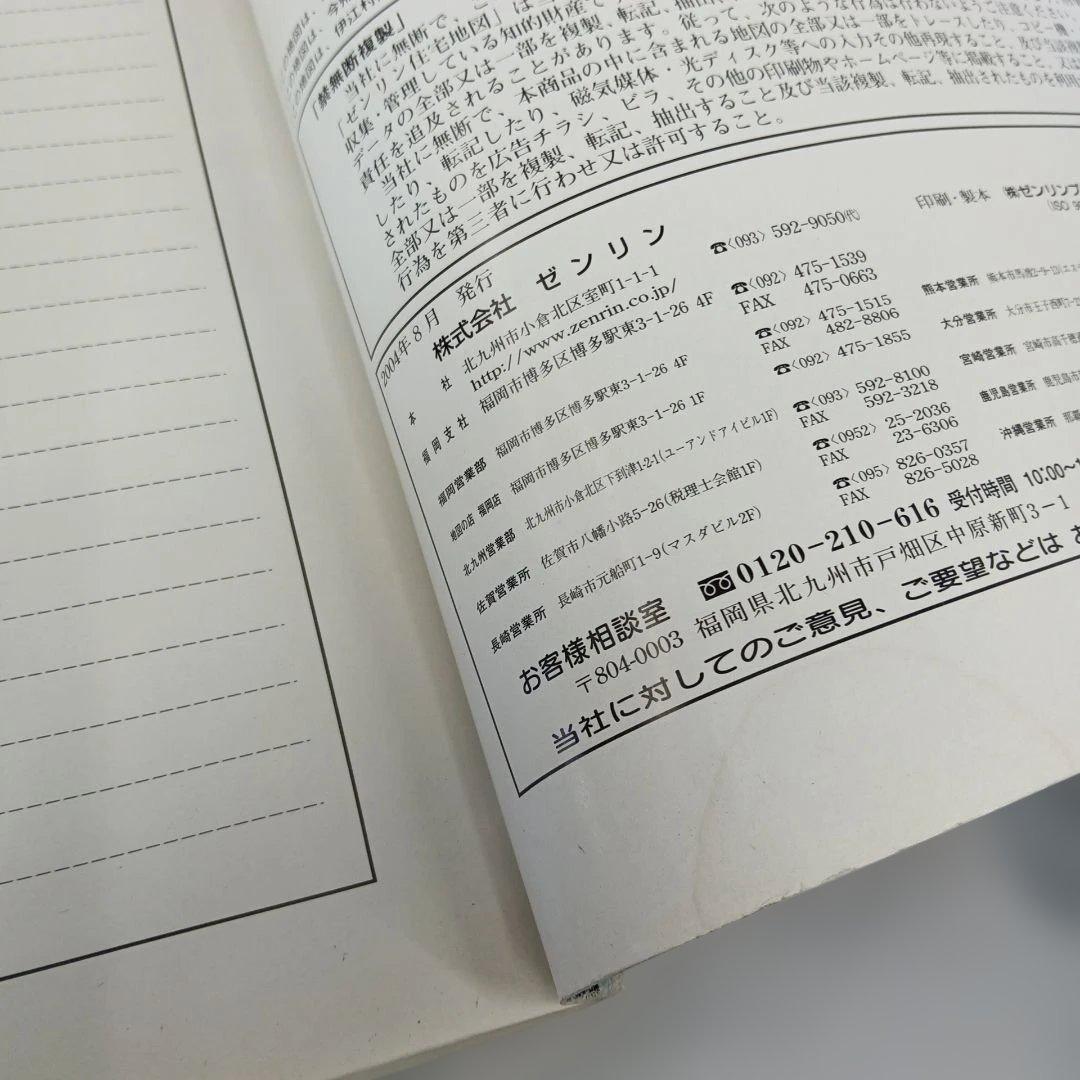 「禁無断複製」
ゼンリン住宅地図」は当
収集・管理している知的財産で
データの全部又は一部を複製、転記、抽出
責任を追及されることがあります。従って、次のような行為は行わないようご注意くだ
当社に無断で、本商品の中に含まれる地図の全部又は一部をトレースしたり、コピー
したり、転記したり、磁気媒体・光ディスク等への入力その他再現すること、及び当該複製
されたものを広告チラシ、ビラ、その他の印刷物やホームページ等に掲載すること、又は
全部又は一部を複製、転記、抽出すること及び当該複製、転記、抽出されたものを利用
行為を第三者に行わせ又は許可すること。
2004年8月 発行
印刷・製本 ㈱ゼンリンプ
株式会社 ゼンリン
本社 北九州市小倉北区室町1-1-1 ☎〈093〉592-9050㈹
http://www.zenrin.co.jp/
福岡支社 福岡市博多区博多駅東3-1-26 4F ☎〈092〉475-1539
FAX 475-0663
福岡営業部 福岡市博多区博多駅東3-1-26 4F ☎〈092〉475-1515
FAX 482-8806
地図の店 福岡店 福岡市博多区博多駅東3-1-26 1F ☎〈092〉475-1855
北九州営業部 北九州市小倉北区下到津1-2-1(ユーアンドアイビル1F) ☎〈093〉592-8100
FAX 592-3218
佐賀営業所 佐賀市八幡小路5-26(税理士会館1F) ☎〈0952〉25-2036
FAX 23-6306
長崎営業所 長崎市元船町1-9(マスダビル2F) ☎〈095〉826-0357
FAX 826-5028
熊本営業所 熊本市馬渡2-9-13
大分営業所 大分市王子西町7-2
宮崎営業所 宮崎市高千穂
鹿児島営業所 鹿児島市
沖縄営業所
お客様相談室 0120-210-616 受付時間 10:00〜1
〒804-0003 福岡県北九州市戸畑区中原新町3-1
当社に対してのご意見、ご要望などは お